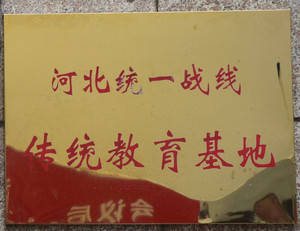 河北统一战线
传统教育基地